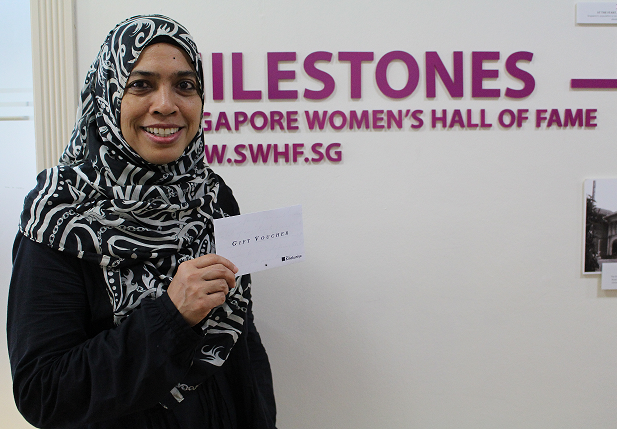 ILESTONES
GAPORE WOMEN'S HALL OF FAME
W.SWHF.SG
GIFT VOUCHER